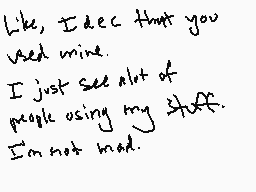 Like, I dec that you
used mine.
I just see alot of
people using my stuff.
I'm not mad.